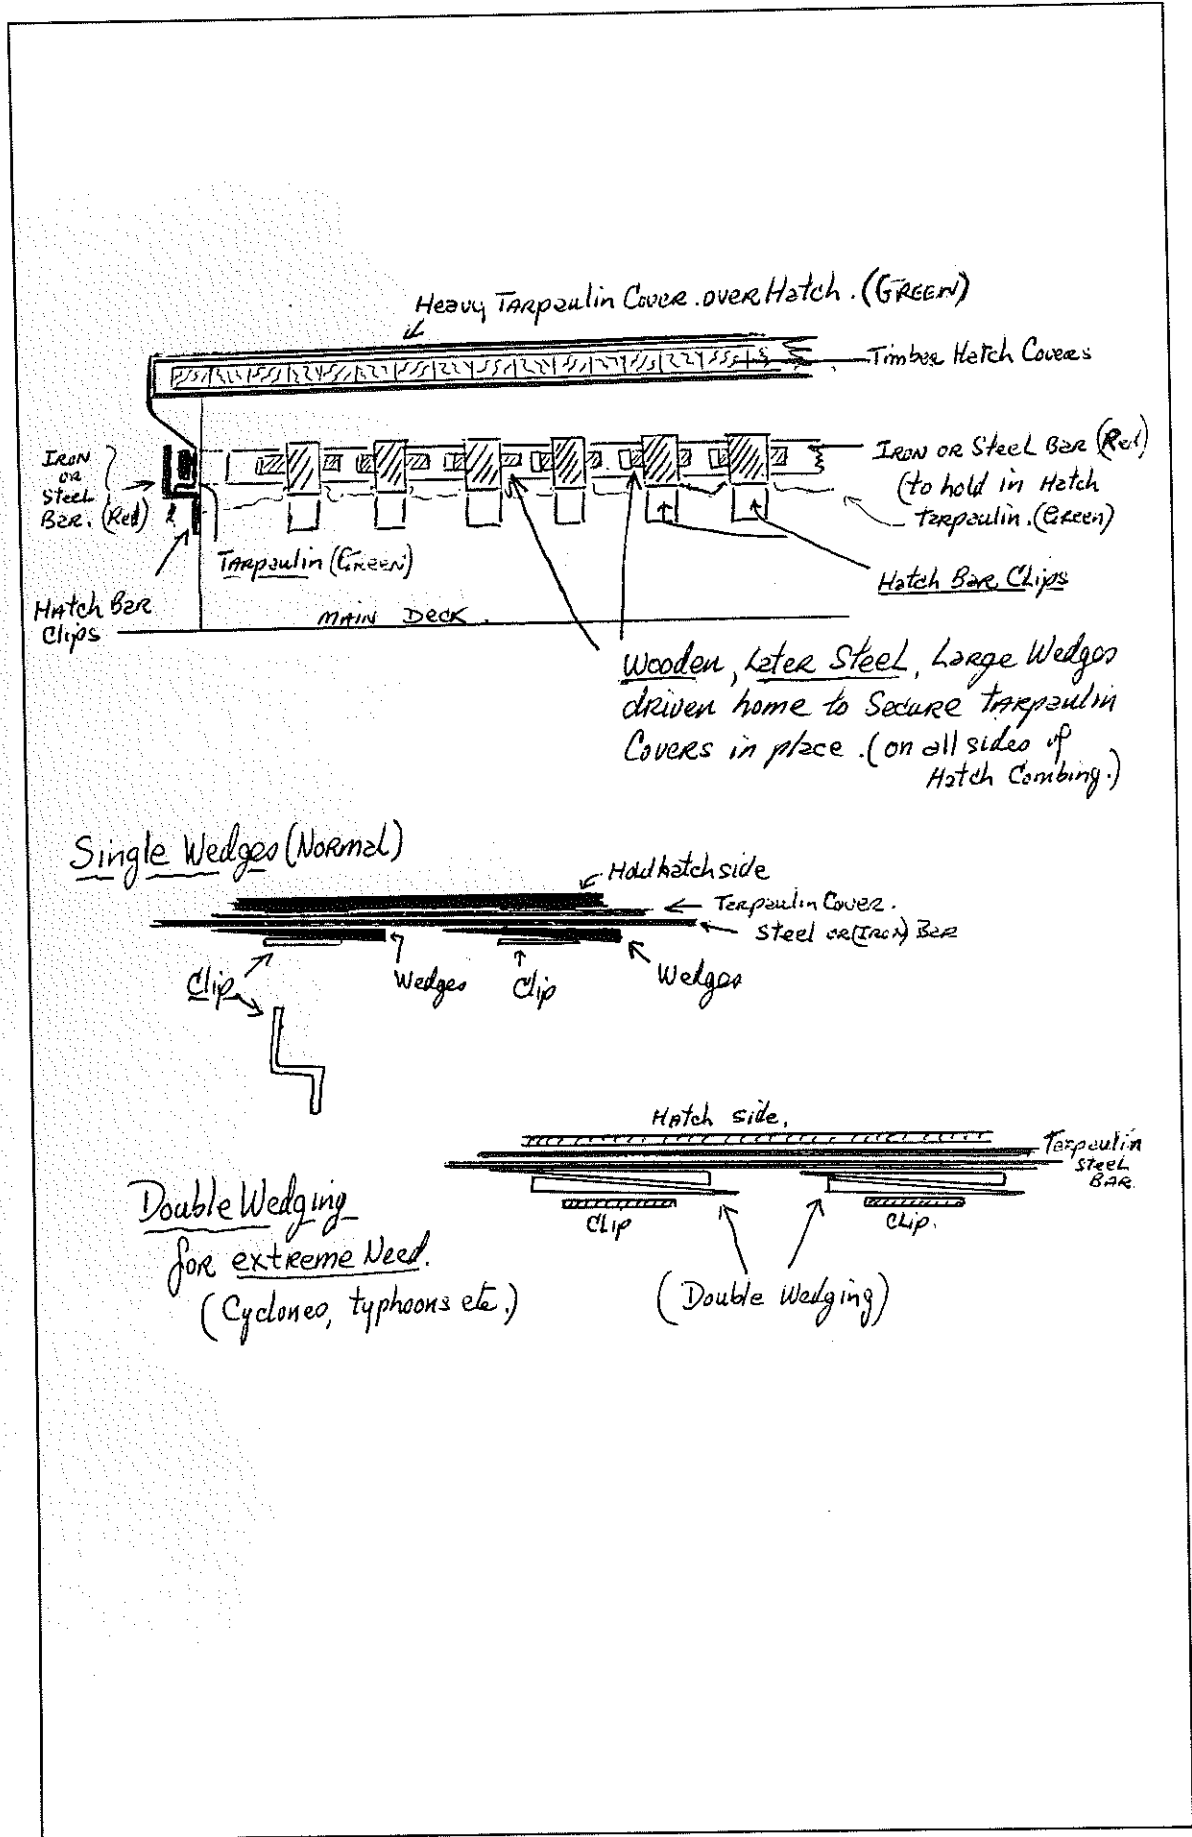 Heavy Tarpaulin Cover. over Hatch. (GREEN)
Timber Hatch Covers
Iron
or
Steel
Bar. (Red)
Iron or Steel Bar (Red)
(to hold in Hatch
Tarpaulin. (Green)
Tarpaulin (Green)
Hatch Bar Clips
Hatch Bar
Clips
Main Deck.
Wooden, Later Steel, Large Wedges
driven home to Secure tarpaulin
Covers in place. (on all sides of
Hatch Combing.)
Single Wedges (Normal)
Hold hatch side
Tarpaulin Cover.
Steel or (Iron) Bar
Clip
Wedges
Clip
Wedges
Hatch side.
Tarpaulin
Steel
Bar.
Clip
Clip.
Double Wedging
for extreme Need.
(Cyclones, typhoons etc.)
(Double Wedging)